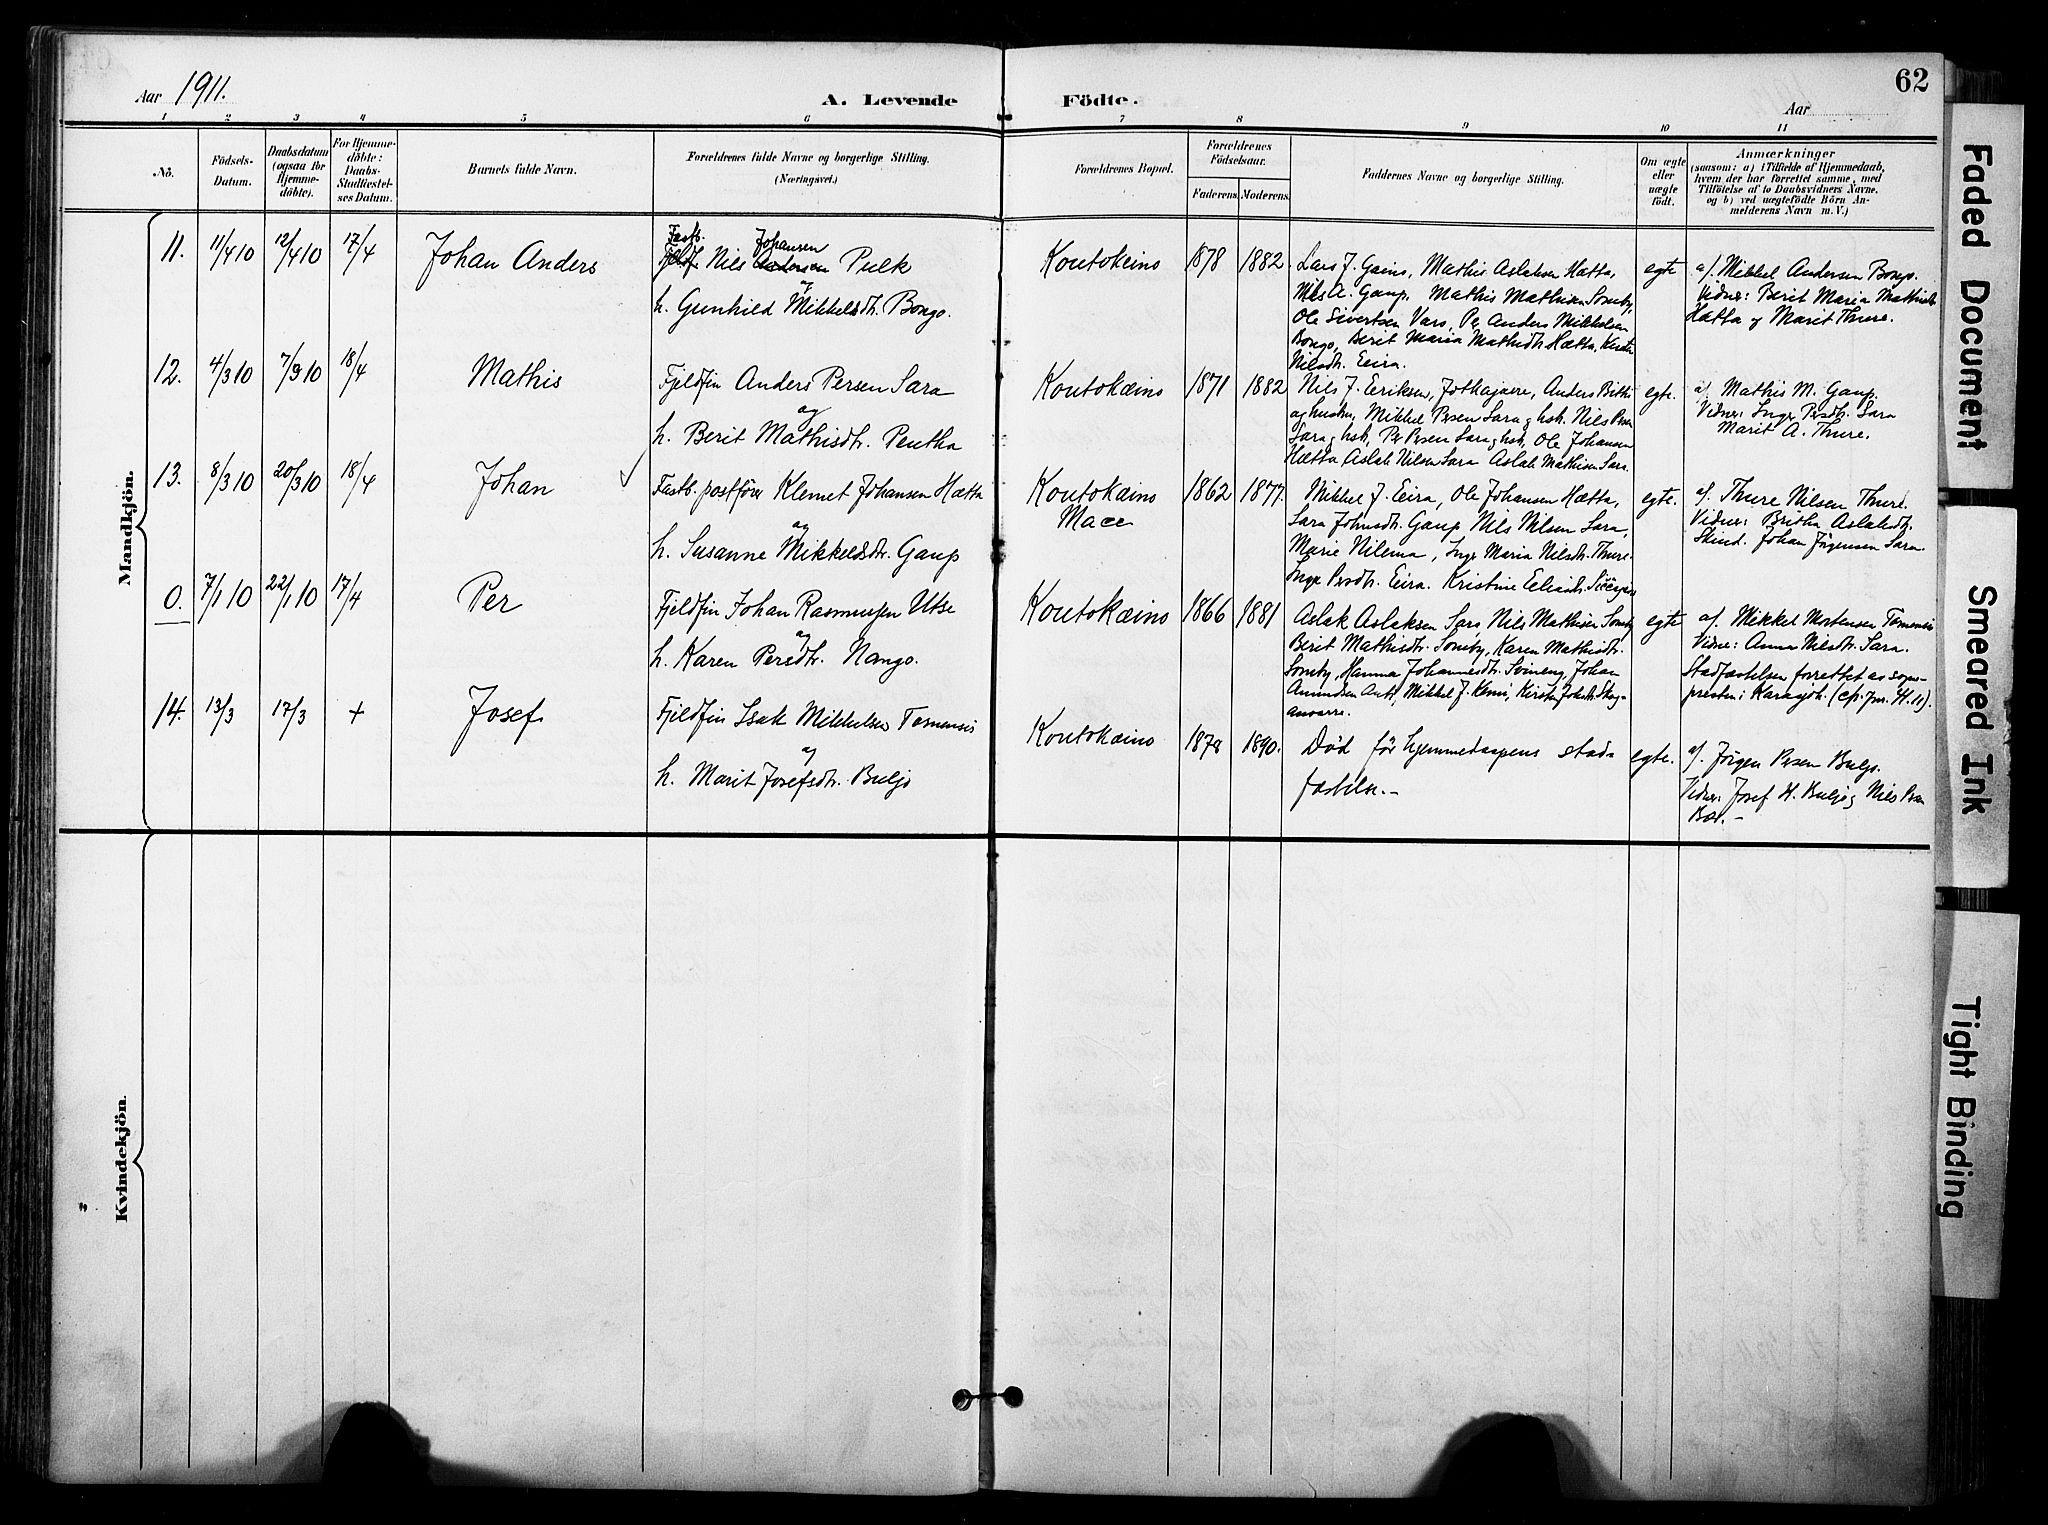 62
Aar 1911.
A. Levende Födte.
Aar
1 2 3 4 5 6 7 8 9 10 11
No.
Födsels-Datum.
Daabsdatum (ogsaa for Hjemmedöbte).
For Hjemmedöbte: Daabs-Stadfæstelses Datum.
Barnets fulde Navn.
Forældrenes fulde Navne og borgerlige Stilling.
(Næringsvei.)
Forældrenes Bopæl.
Forældrenes Födselsaar.
Faderens. Moderens.
Faddernes Navne og borgerlige Stilling.
Om ægte eller uægte födt.
Anmærkninger
(saasom: a) i Tilfælde af Hjemmedaab, hvem der har forrettet samme, med Tilföielse af to Daabsvidners Navne, og b) ved uægtefödte Börn Anmelderens Navn m. V.)
Mandkjön.
11. 11/4 10 12/4 10 17/4 Johan Anders
Fastb. Johansen
Fjeldf. Nils Andersen Pulk
og
h. Gunhild Mikkelsdtr. Bongo.
Koutokeino 1878 1882.
Lars J. Gaino, Mathis Aslaksen Hætta,
Nils A. Gaup, Mathis Mathisen Somby,
Ole Sivertsen Vars, Per Anders Mikkelsen
Bongo, Berit Maria Mathisdtr. Hætta, Kirsten
Nilsdtr. Eira.
egte
a/. Mikkel Andersen Bongo.
Vidner: Berit Maria Mathisdtr.
Hætta og Marit Thure.
12. 4/3 10 7/3 10 18/4 Mathis
Fjeldfin Anders Persen Sara
og
h. Berit Mathisdtr. Pentha
Koutokæino 1871 1882
Nils J. Eeriksen, Anders Bitti
og hustru, Mikkel Persen Sara og hstr. Nils Persen
Sara og hstr, Per Persen Sara og hstr, Ole Johansen
Hætta Aslak Nilsen Sara Aslak Mathisen Sara.
egte.
a/. Mathis M. Gaup.
Vidner: Inger Persdtr. Sara
Marit A. Thure.
13. 8/3 10 20/3 10 18/4 Johan
Fastb. postfører Klemet Johansen Hætta
og
h. Susanne Mikkelsdtr. Gaup
Koutokæino
Maee
1862 1877.
Mikkel J. Eira, Ole Johansen Hætta,
Sara Johnsdtr. Gaup Nils Nilsen Sara,
Marie Nilema, Inger Maria Nilsdtr. Thure.
Inger Persdtr. Eira. Kristine
egte.
a/. Thure Nilsen Thure.
Vidner: Britha Aslaksdtr.
Skind. Johan Jörgensen Sara.
0. 7/1 10 22/1 10 17/4 Per
Fjeldfin Johan Rasmussen Utse
og
h. Karen Persdtr. Nango.
Koutokæino 1866 1881
Aslak Aslaksen Sara Nils Mathisen Somby
Berit Mathisdtr. Somby, Karen Mathisdtr.
Somby, Hanna Johannesdtr. Svineng, Johan
Amundsen Anti, Mikkel J. Kemi, Kirsten
egte
a/. Mikkel Mortensen Tornensis
Vidne: Anna Nilsdtr. Sara.
Stadfæstelsen forrettet av sogne-
presten i Karasjok. (cp. jnr. H. 11).
14. 13/3 17/3 + Josef
Fjeldfin Isak Mikkelsen Tornensis
og
h. Marit Josefsdtr. Buljo
Koutokæino 1878 1890.
Død før hjemmedaapens stad-
fæstelse.-
egte.
a/. Jörgen Persen Buljo.
Vidner: Josef H. Buljo og Nils Persen
Bær.-
Kvindekjön.
Faded Document
Smeared Ink
Tight Binding